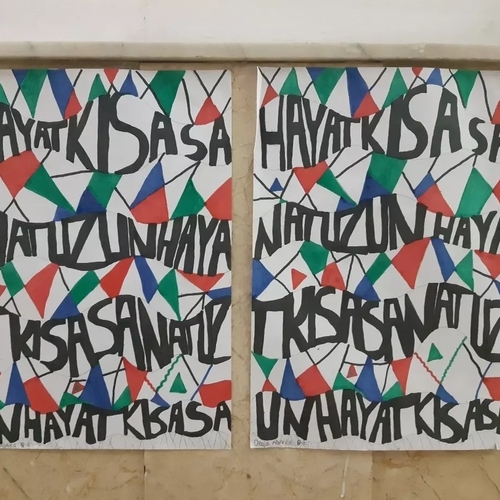 AYAT KISA SA
NAT UZUN HAYA
T KISA SANAT UZ
UN HAYAT KISA SA
HAYAT KISA SA
NAT UZUN HAYA
T KISA SANAT UZ
UN HAYAT KISA SA